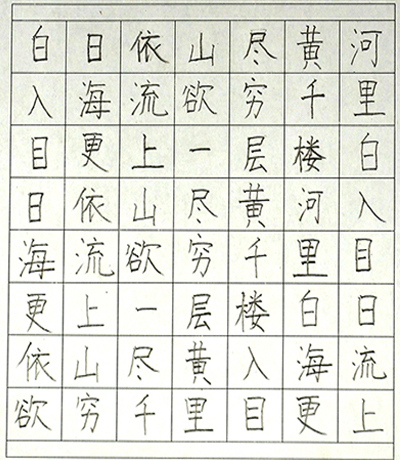 白日依山尽黄河
入海流欲穷千里
目更上一层楼白
日依山尽黄河入
海流欲穷千里目
更上一层楼白日
依山尽黄入海流
欲穷千里目更上